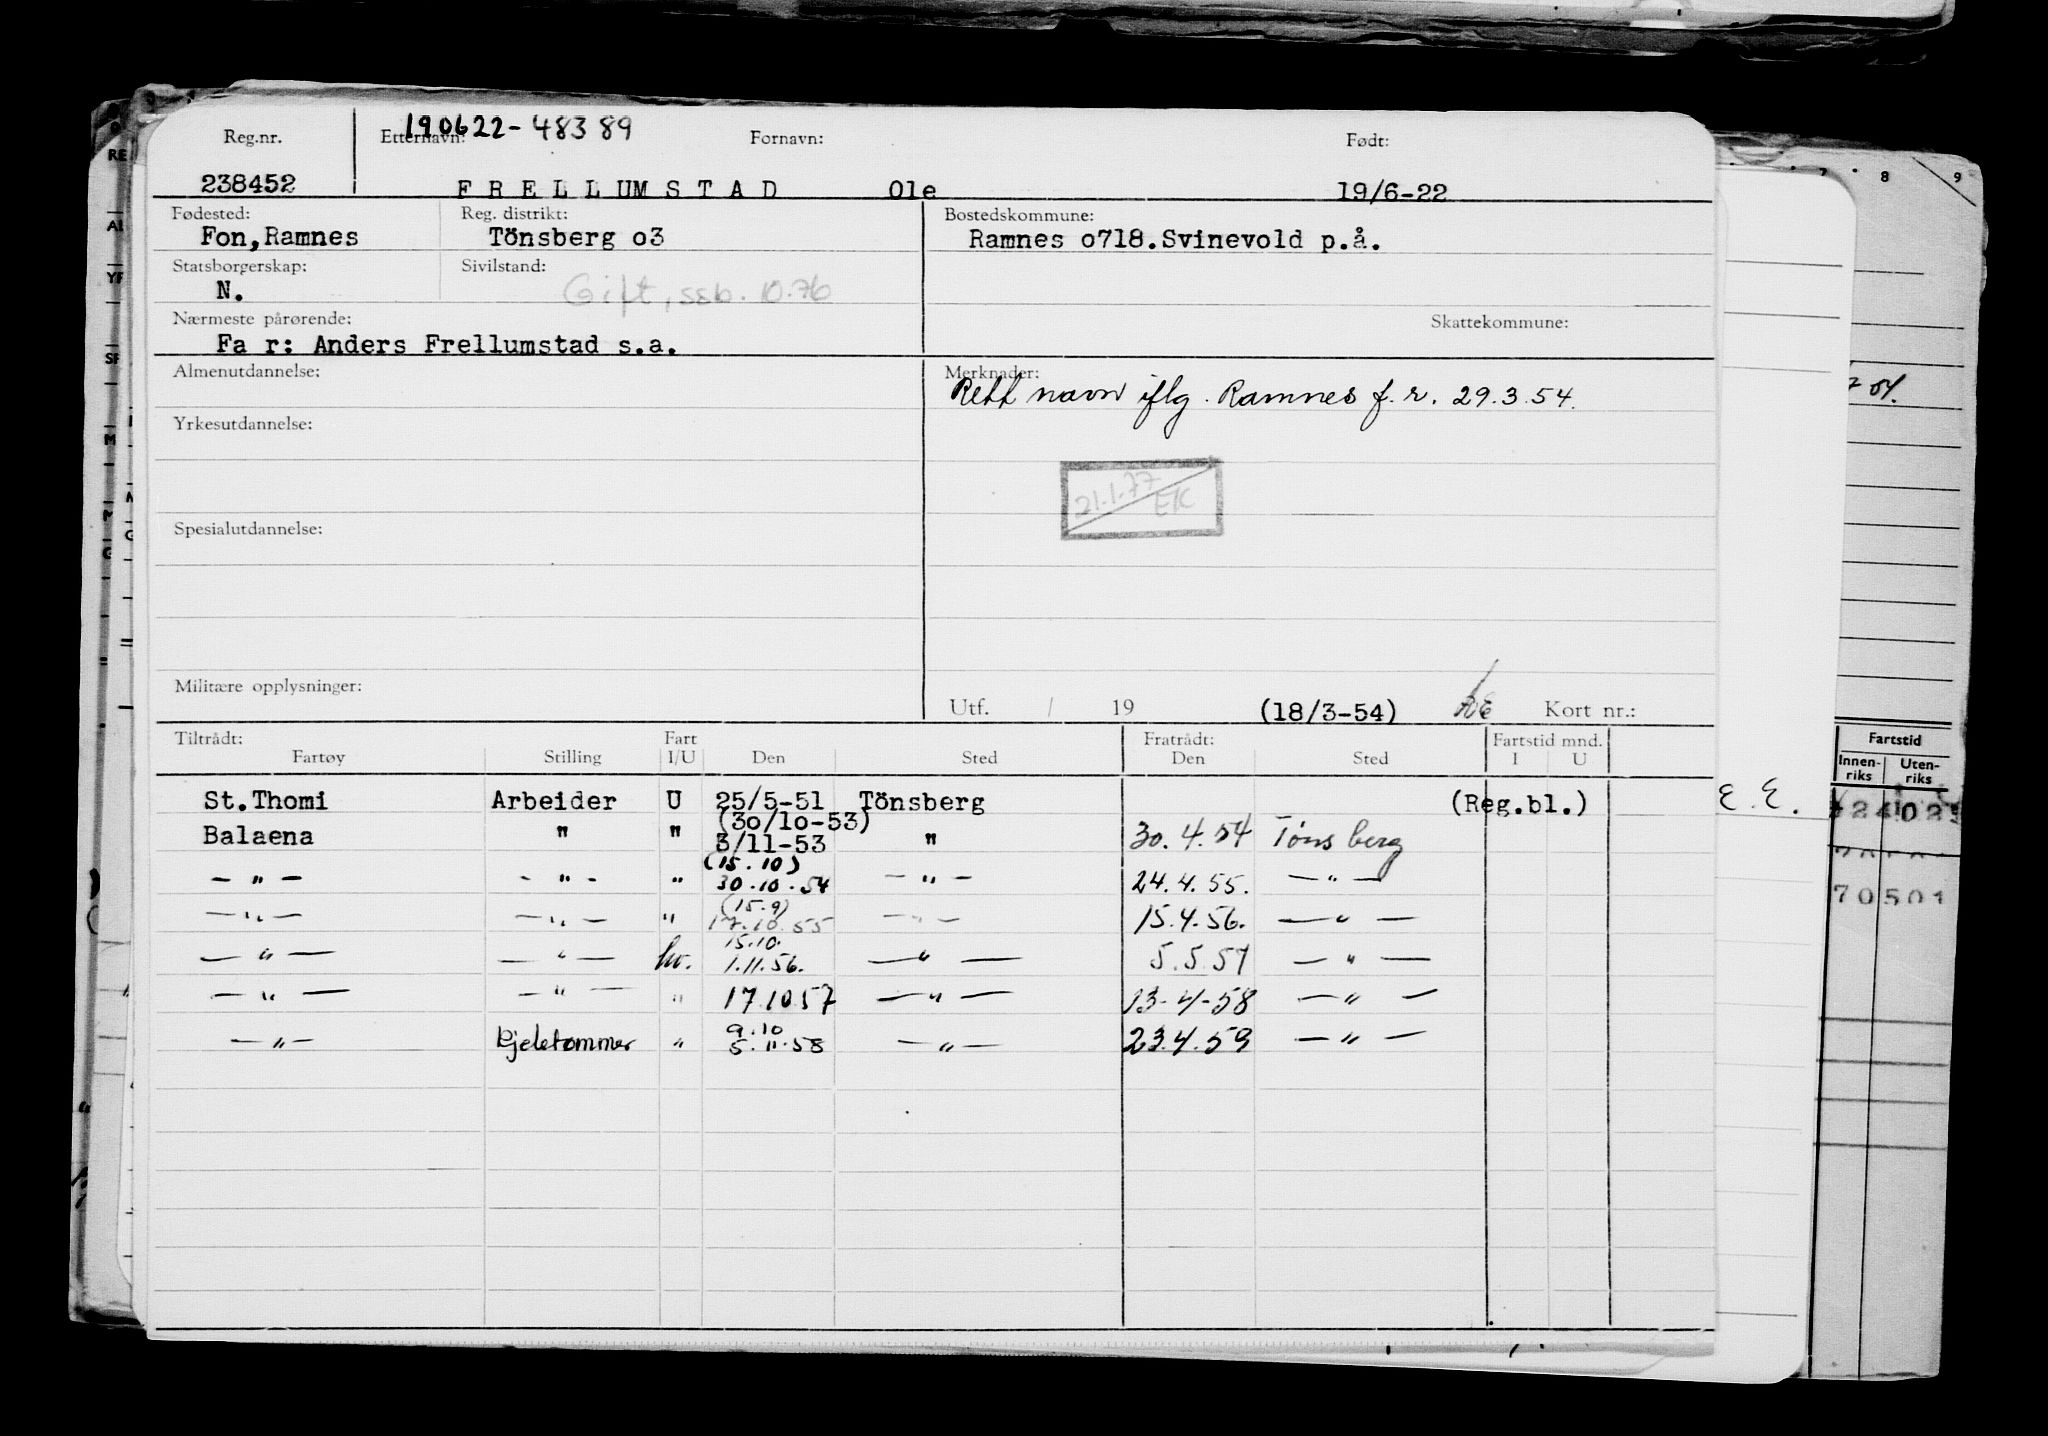 190622-48389
Reg.nr. Etternavn: Fornavn: Født:
238452 F R E L L UM S T A D Ole 19/6-22
Fødested: Reg. distrikt: Bostedskommune:
Fon,Ramnes Tönsberg o3 Ramnes o718.Svinevold p.å.
Statsborgerskap: Sivilstand:
N. Gift, ssb. 10.76
Nærmeste pårørende: Skattekommune:
Fa r: Anders Frellumstad s.a.
Almenutdannelse: Merknader:
Rett navn iflg. Ramnes f. r. 29.3.54.
Yrkesutdannelse:
21.1.77 EK
Spesialutdannelse:
Militære opplysninger:
Utf. / 19 (18/3-54) Kort nr.:
Tiltrådt: Fart Fratrådt: Fartstid mnd.
Fartøy Stilling I/U Den Sted Den Sted I U
St.Thomi Arbeider U 25/5-51 Tönsberg (Reg.bl.)
(30/10-53)
Balaena " " 3/11-53 " 30.4.54 Tønsberg
(15.10)
— " — - " - " 30.10.54 — " — 24.4.55. — " —
(15.9)
— " — — " — " 17.10.55 — " — 15.4.56. — " —
15.10.
— " — — " — hv. 1.11.56. — " — 5.5.57 — " —
— " — — " — " 17.10.57 — " — 13-4-58 — " —
9.10
— " — kjeletømmer " 5.11.58 — " — 23.4.59 — " —
E. E.
8 9
Fartstid
Innen- Uten-
riks riks
70501